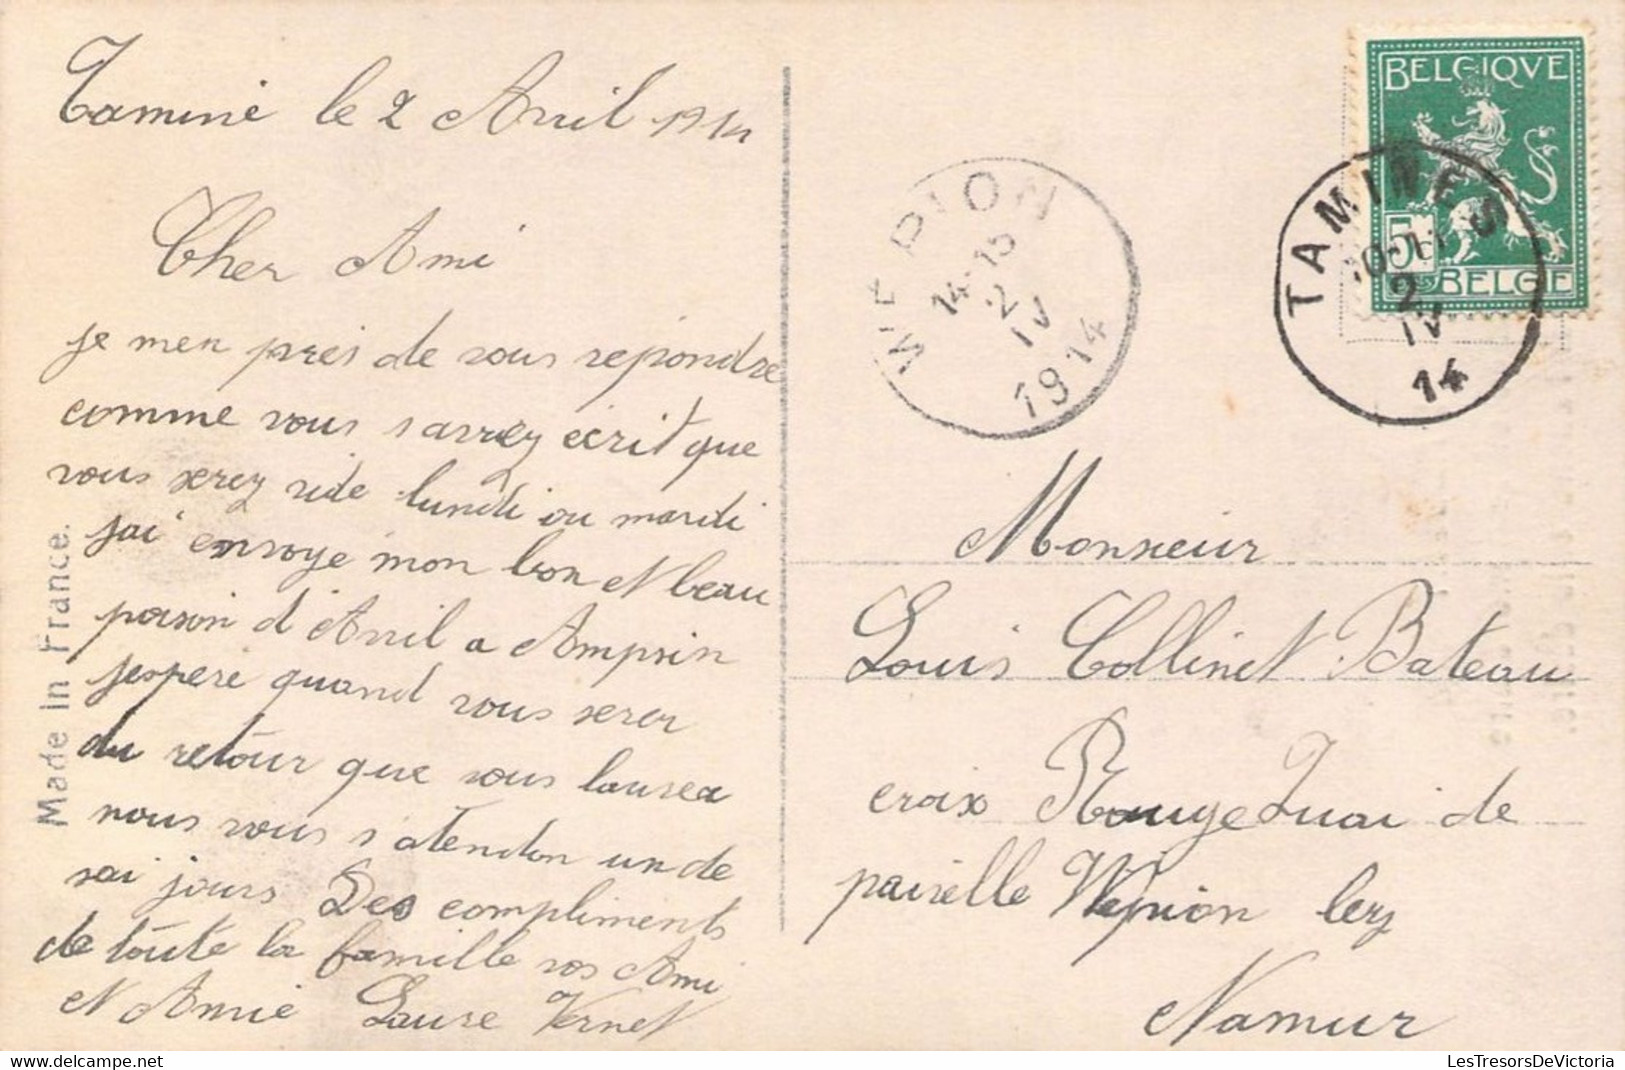 Tamine le 2 Avril 1914
Cher Ami
je men pres de vous repondre
comme vous savrez écrit que
vous serez vide lundi ou mardi
jai envoye mon bon et beau
poisson d'Avril a Ampsin
jespere quand vous serer
du retour que vous
nous vous s'atendon un de
sai jours Des compliments
de toute la famille vos Ami
et Amie Laure Vernet
Made in France.
WEPION
14-15
2
IV
1914
BELGIQVE
5c
BELGIE
TAMINES
10-11
2
IV
14
Monsieur
Louis Collinet Bateau
croix Rouge Quai de
pairelle Wepion lez
Namur
LesTresorsDeVictoria
delcampe.net